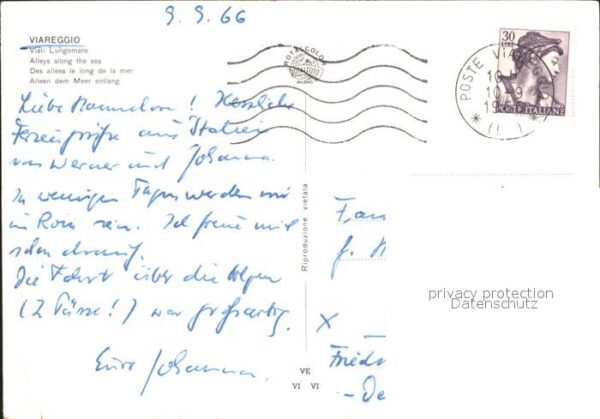 9. 9. 66
VIAREGGIO
Viali Lungomare
Alleys along the sea
Des allées le long de la mer
Alleen dem Meer entlang
Liebe ! Herzliche
Feriengrüße aus Italien
von Werner und Johanna.
In wenigen Tagen werden wir
in Rom sein. Ich freue mich
schon drauf.
Die Fahrt über die Alpen
(2 Pässe!) war großartig.
Eure Johanna.
ROTALCOLOR
MILANO
30
LIRE
POSTE ITALIANE
POSTE VIAREGGIO
10
10.9
(L )
Riproduzione vietata
VE
VI VI
Fam
f.
X
Frieds
- De
privacy protection
Datenschutz